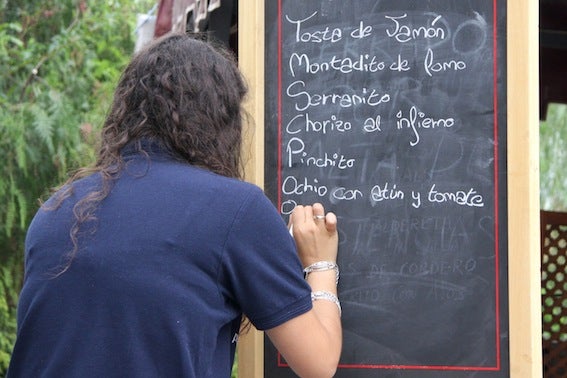 Tosta de Jamón
Montadito de lomo
Serranito
Chorizo al infierno
Pinchito
Ochio con atún y tomate